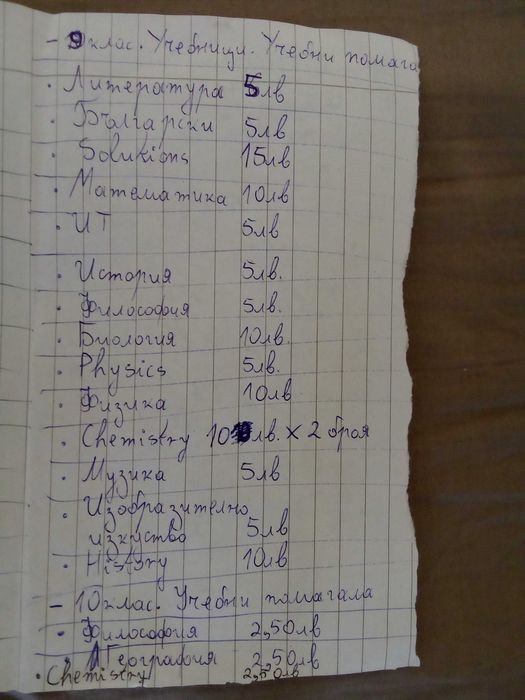 - 9 клас. Учебници. Учебни помага
· Литература 5лв
· Български 5лв
Solutions 15лв
· Математика 10лв
· ИТ 5лв
· История 5лв.
· Философия 5лв.
· Биология 10лв.
· Physics 5лв.
· Физика 10лв
· Chemistry 10лв. × 2 броя
· Музика 5лв
· Изобразително
изкуство 5лв
· History 10лв
- 10клас. Учебни помагала
· Философия 2,50лв
· География 2,50лв
· Chemistry 2,50лв